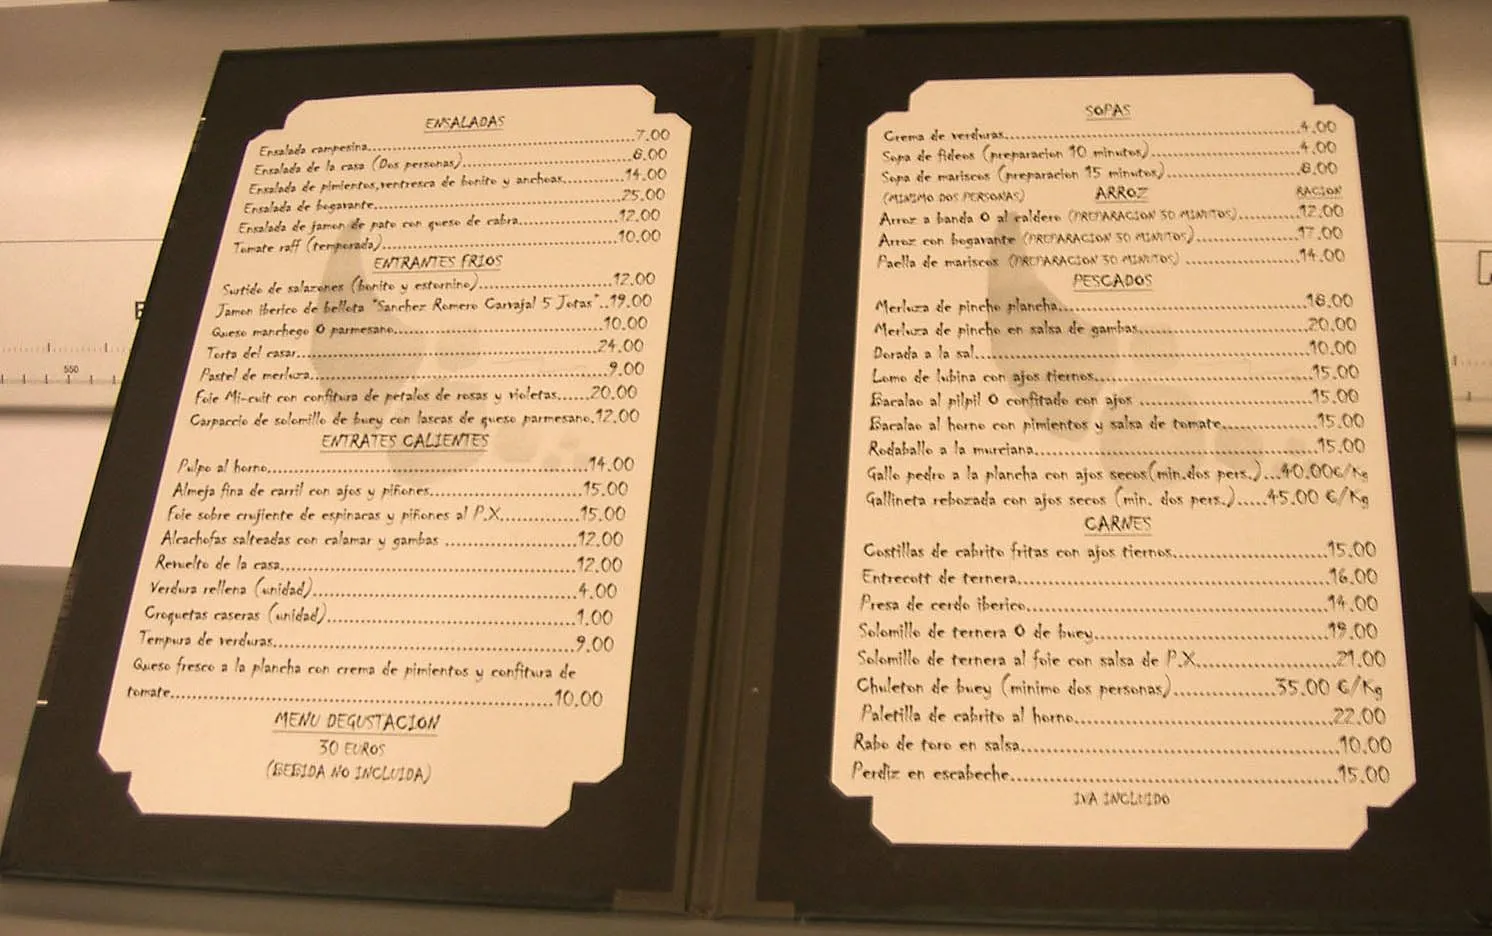 ENSALADAS
Ensalada campesina...7.00
Ensalada de la casa (Dos personas)...8.00
Ensalada de pimientos,ventresca de bonito y anchoas...14.00
Ensalada de bogavante...25.00
Ensalada de jamon de pato con queso de cabra...12.00
Tomate raff (temporada)...10.00
ENTRANTES FRIOS
Surtido de salazones (bonito y estornino)...12.00
Jamon iberico de bellota "Sanchez Romero Carvajal 5 Jotas"..19.00
Queso manchego O parmesano...10.00
Torta del casar...24.00
Pastel de merluza...9.00
Foie Mi-cuit con confitura de petalos de rosas y violetas...20.00
Carpaccio de solomillo de buey con lascas de queso parmesano.12.00
ENTRATES CALIENTES
Pulpo al horno...14.00
Almeja fina de carril con ajos y piñones...15.00
Foie sobre crujiente de espinacas y piñones al P.X...15.00
Alcachofas salteadas con calamar y gambas ...12.00
Revuelto de la casa...12.00
Verdura rellena (unidad)...4.00
Croquetas caseras (unidad)...1.00
Tempura de verduras...9.00
Queso fresco a la plancha con crema de pimientos y confitura de
tomate...10.00
MENU DEGUSTACION
30 EUROS
(BEBIDA NO INCLUIDA)
SOPAS
Crema de verduras...4.00
Sopa de fideos (preparacion 10 minutos)...4.00
Sopa de mariscos (preparacion 15 minutos)...8.00
(MINIMO DOS PERSONAS) ARROZ RACION
Arroz a banda O al caldero (PREPARACION 30 MINUTOS)...12.00
Arroz con bogavante (PREPARACION 30 MINUTOS)...17.00
Paella de mariscos (PREPARACION 30 MINUTOS) ...14.00
PESCADOS
Merluza de pincho plancha...18.00
Merluza de pincho en salsa de gambas...20.00
Dorada a la sal...10.00
Lomo de lubina con ajos tiernos...15.00
Bacalao al pilpil O confitado con ajos ...15.00
Bacalao al horno con pimientos y salsa de tomate...15.00
Rodaballo a la murciana...15.00
Gallo pedro a la plancha con ajos secos(min.dos pers.)...40.00€/Kg
Gallineta rebozada con ajos secos (min. dos pers.)...45.00 €/Kg
CARNES
Costillas de cabrito fritas con ajos tiernos...15.00
Entrecott de ternera...16.00
Presa de cerdo iberico...14.00
Solomillo de ternera O de buey...19.00
Solomillo de ternera al foie con salsa de P.X...21.00
Chuleton de buey (minimo dos personas)...35.00 €/Kg
Paletilla de cabrito al horno...22.00
Rabo de toro en salsa...10.00
Perdiz en escabeche...15.00
IVA INCLUIDO
550